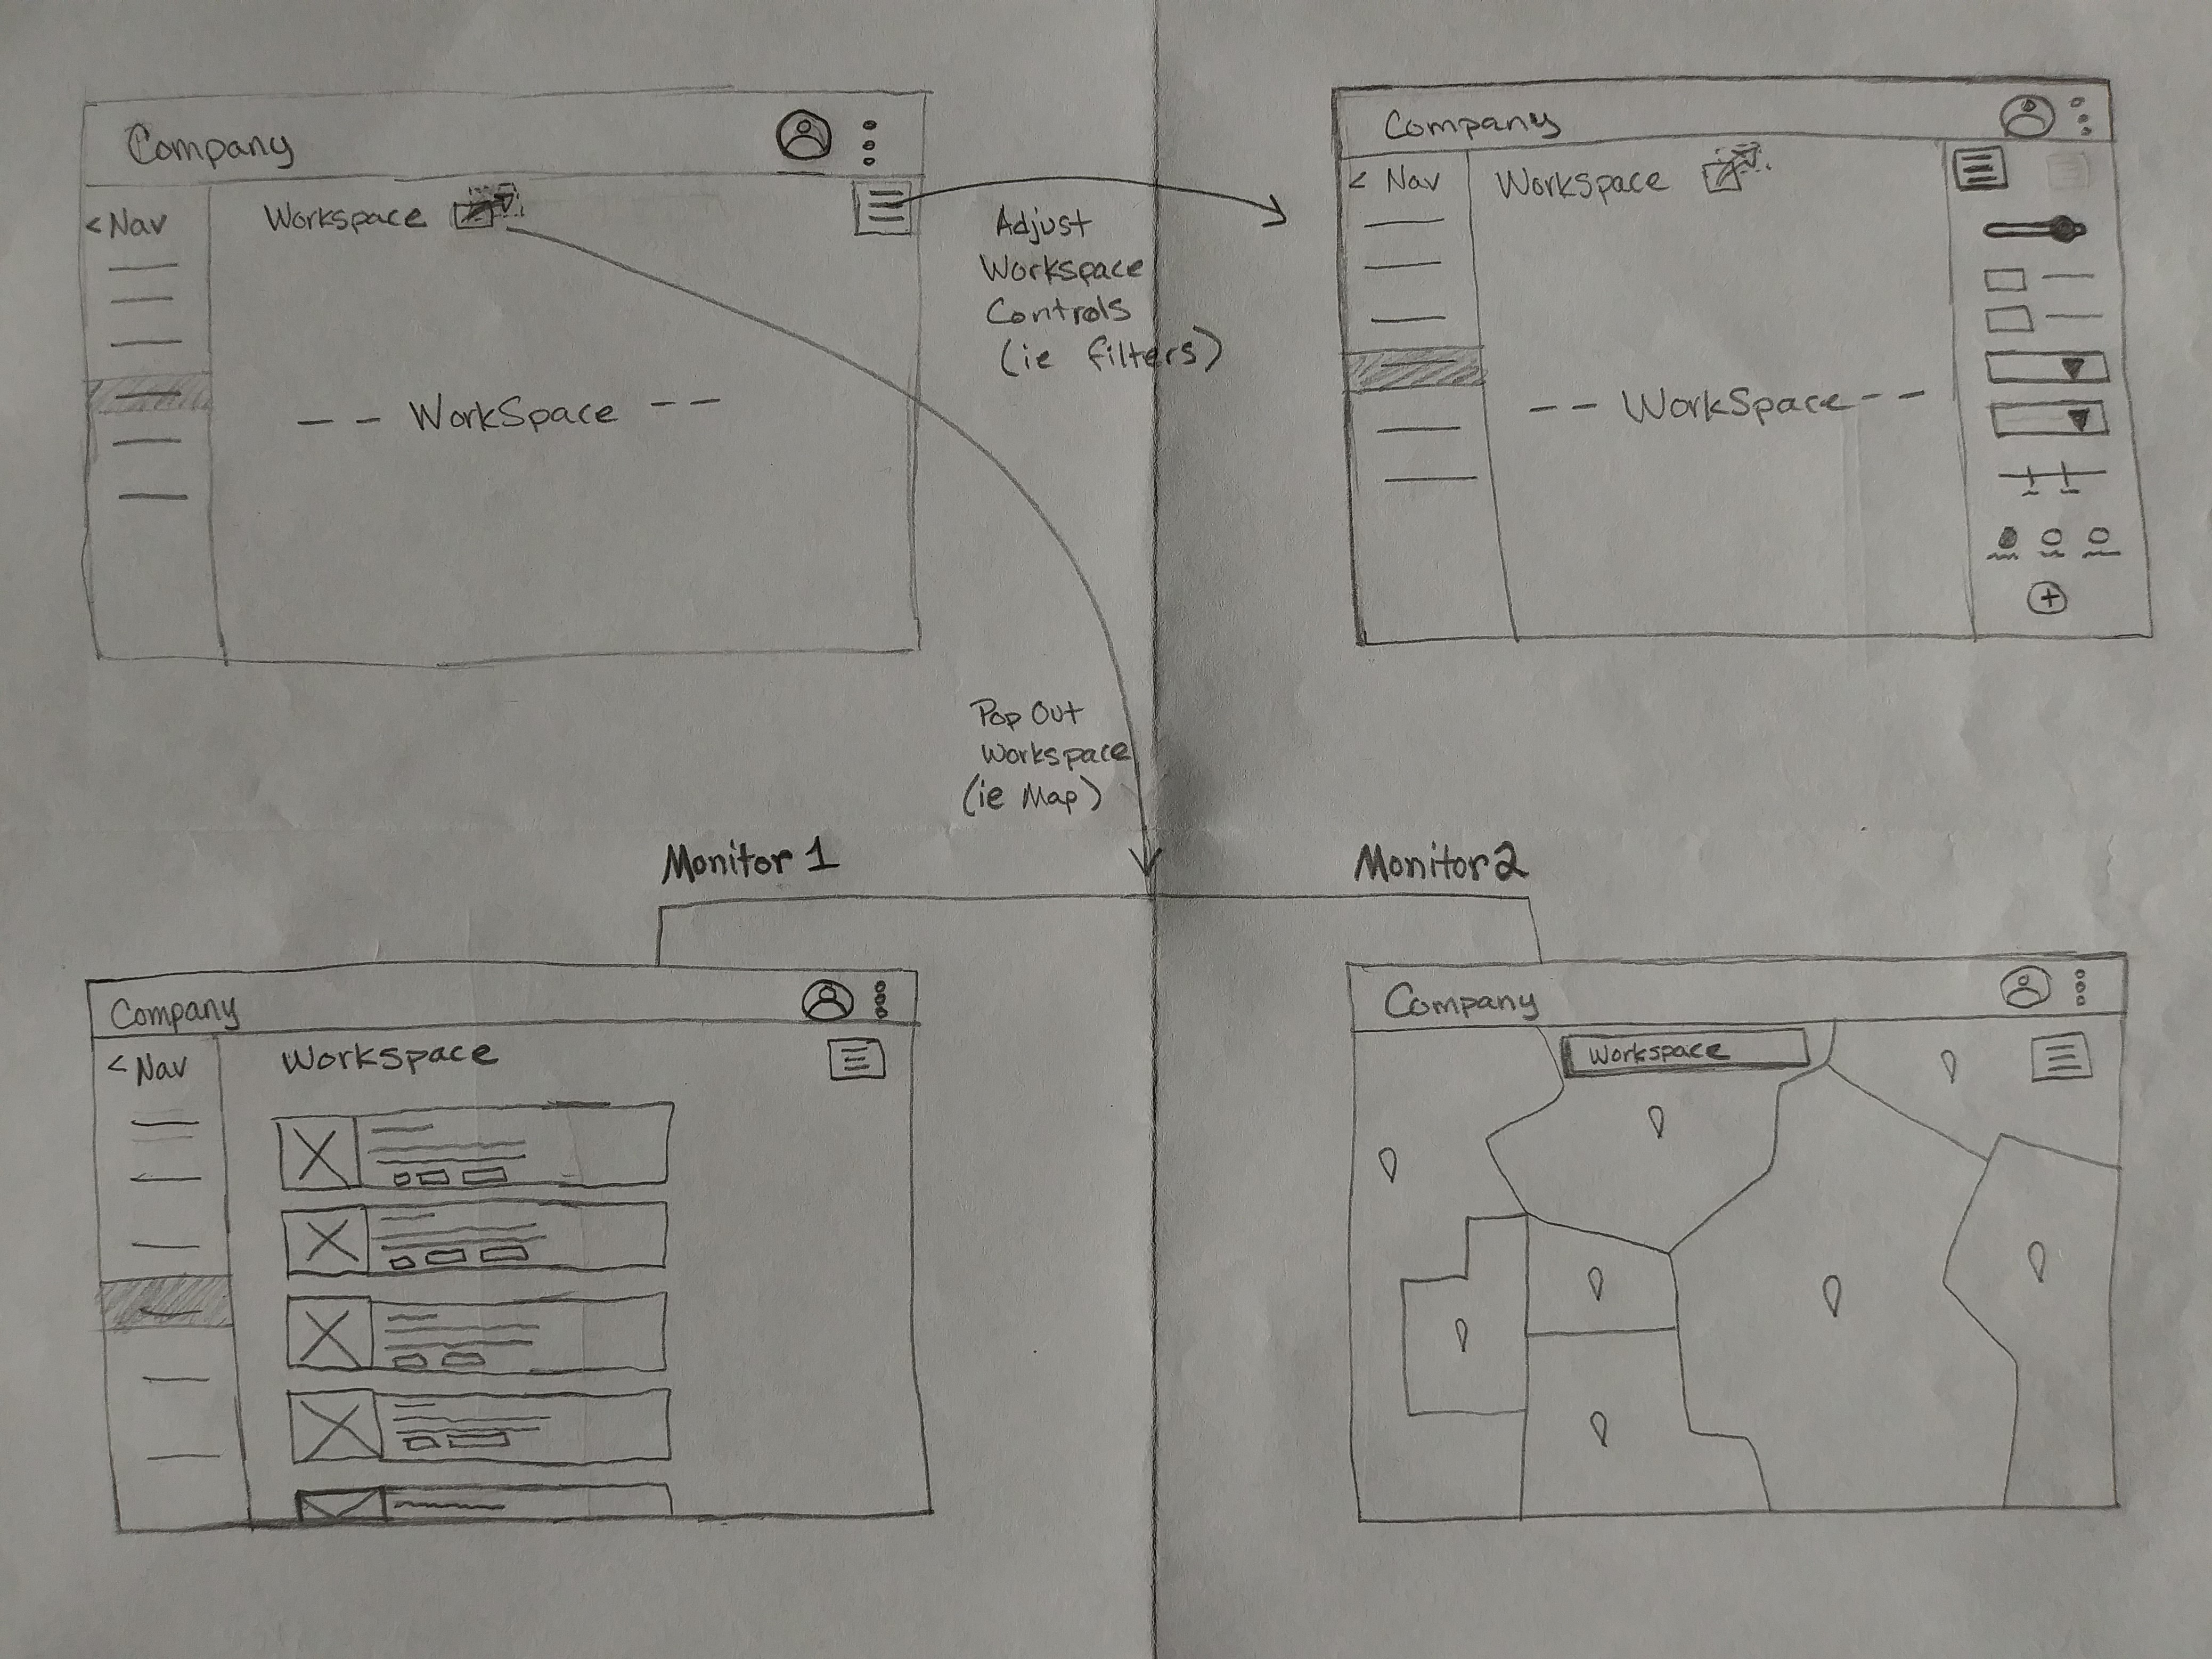 Company
< Nav
Workspace
-- WorkSpace --
Adjust
Workspace
Controls
(ie filters)
Company
< Nav
Workspace
-- WorkSpace --
Pop Out
Workspace
(ie Map)
Monitor 1
Monitor 2
Company
< Nav
Workspace
Company
Workspace